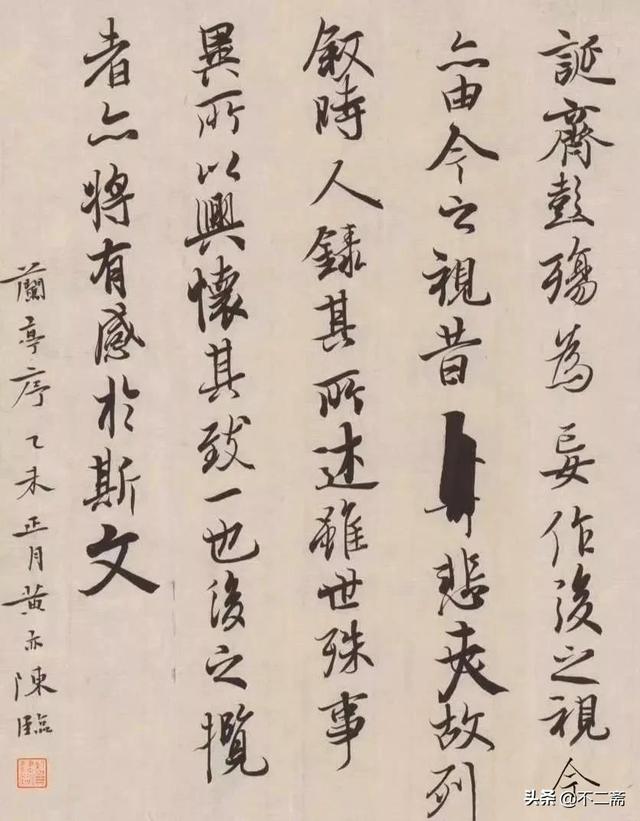 誕齊彭殤為妄作後之視今
亦由今之視昔悲夫故列
叙時人錄其所述雖世殊事
異所以興懷其致一也後之攬
者亦將有感於斯文
蘭亭序乙未正月黃亦陳臨
头条 @不二斋